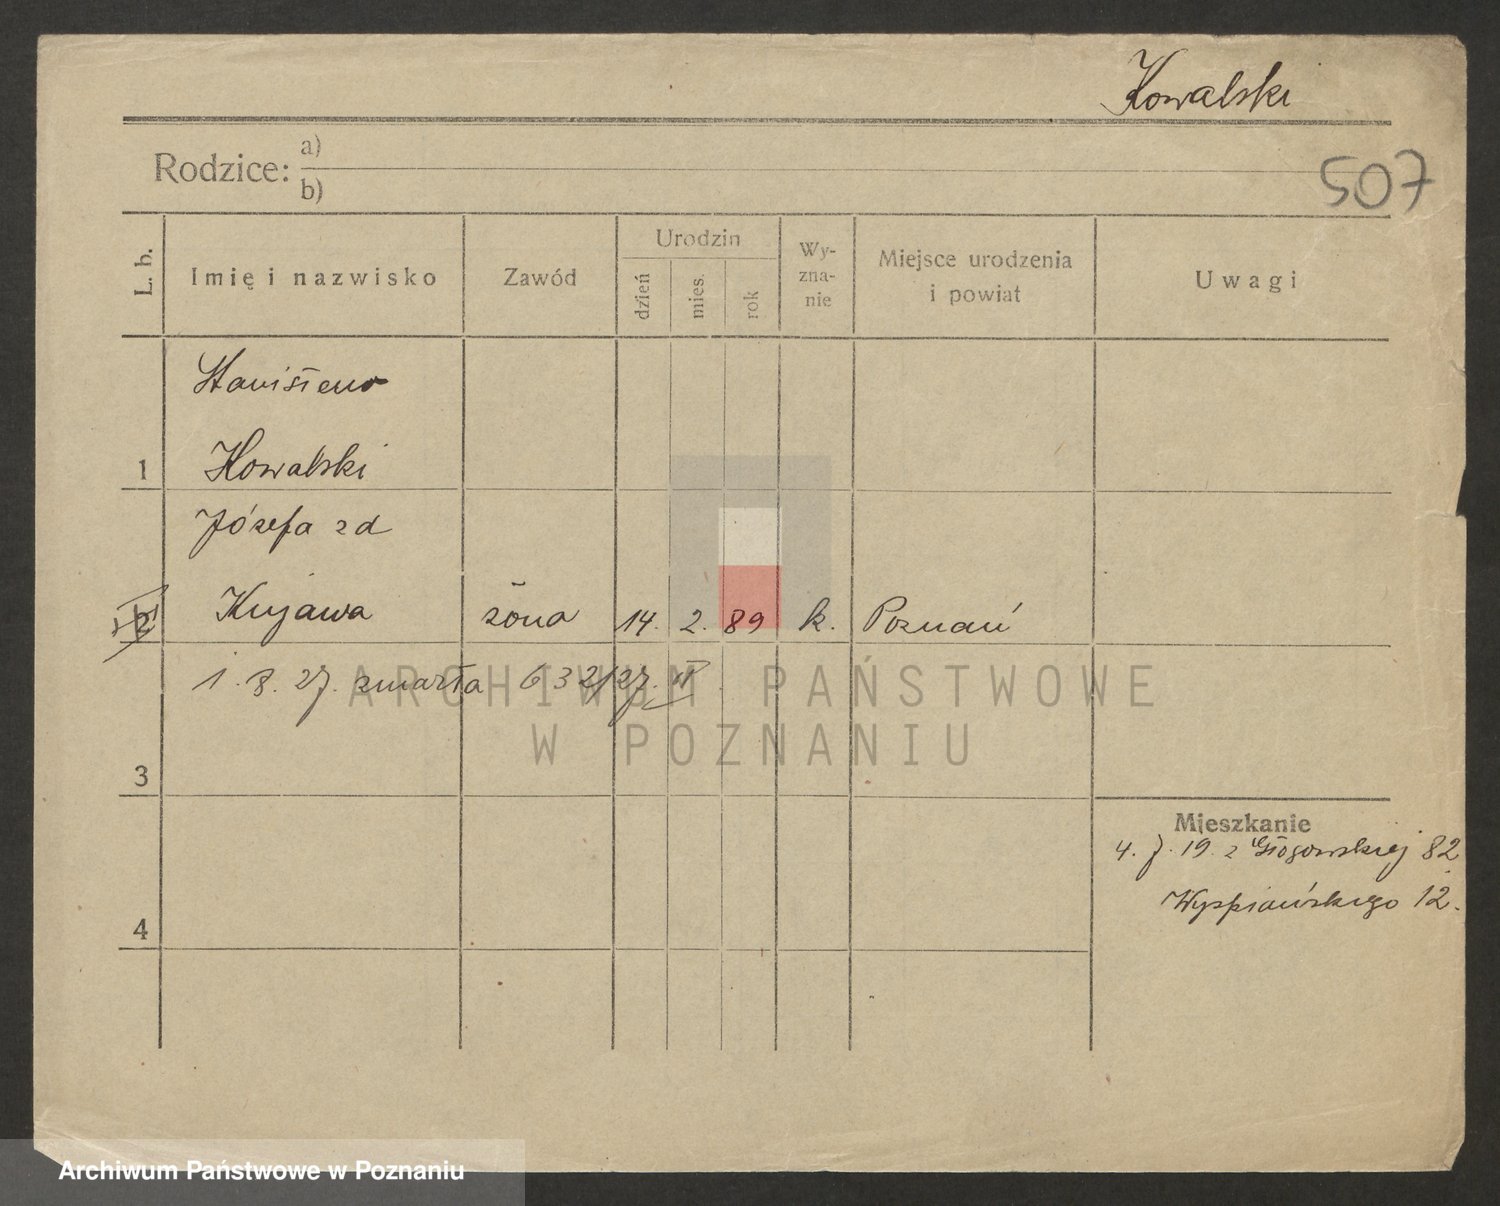 Kowalski
Rodzice: a)
b)
507
L. b.
Imię i nazwisko
Zawód
Urodzin
dzień
mies.
rok
Wy-
zna-
nie
Miejsce urodzenia
i powiat
Uwagi
Stanisław
1 Kowalski
Józefa zd
2 Kujawa żona 14. 2. 89 k. Poznań
1. 8. 27. zmarła 632/27. II
ARCHIWUM PAŃSTWOWE
W POZNANIU
3
Mieszkanie
4. 7. 19. z Głogowskiej 82
Wyspiańskiego 12.
4
Archiwum Państwowe w Poznaniu